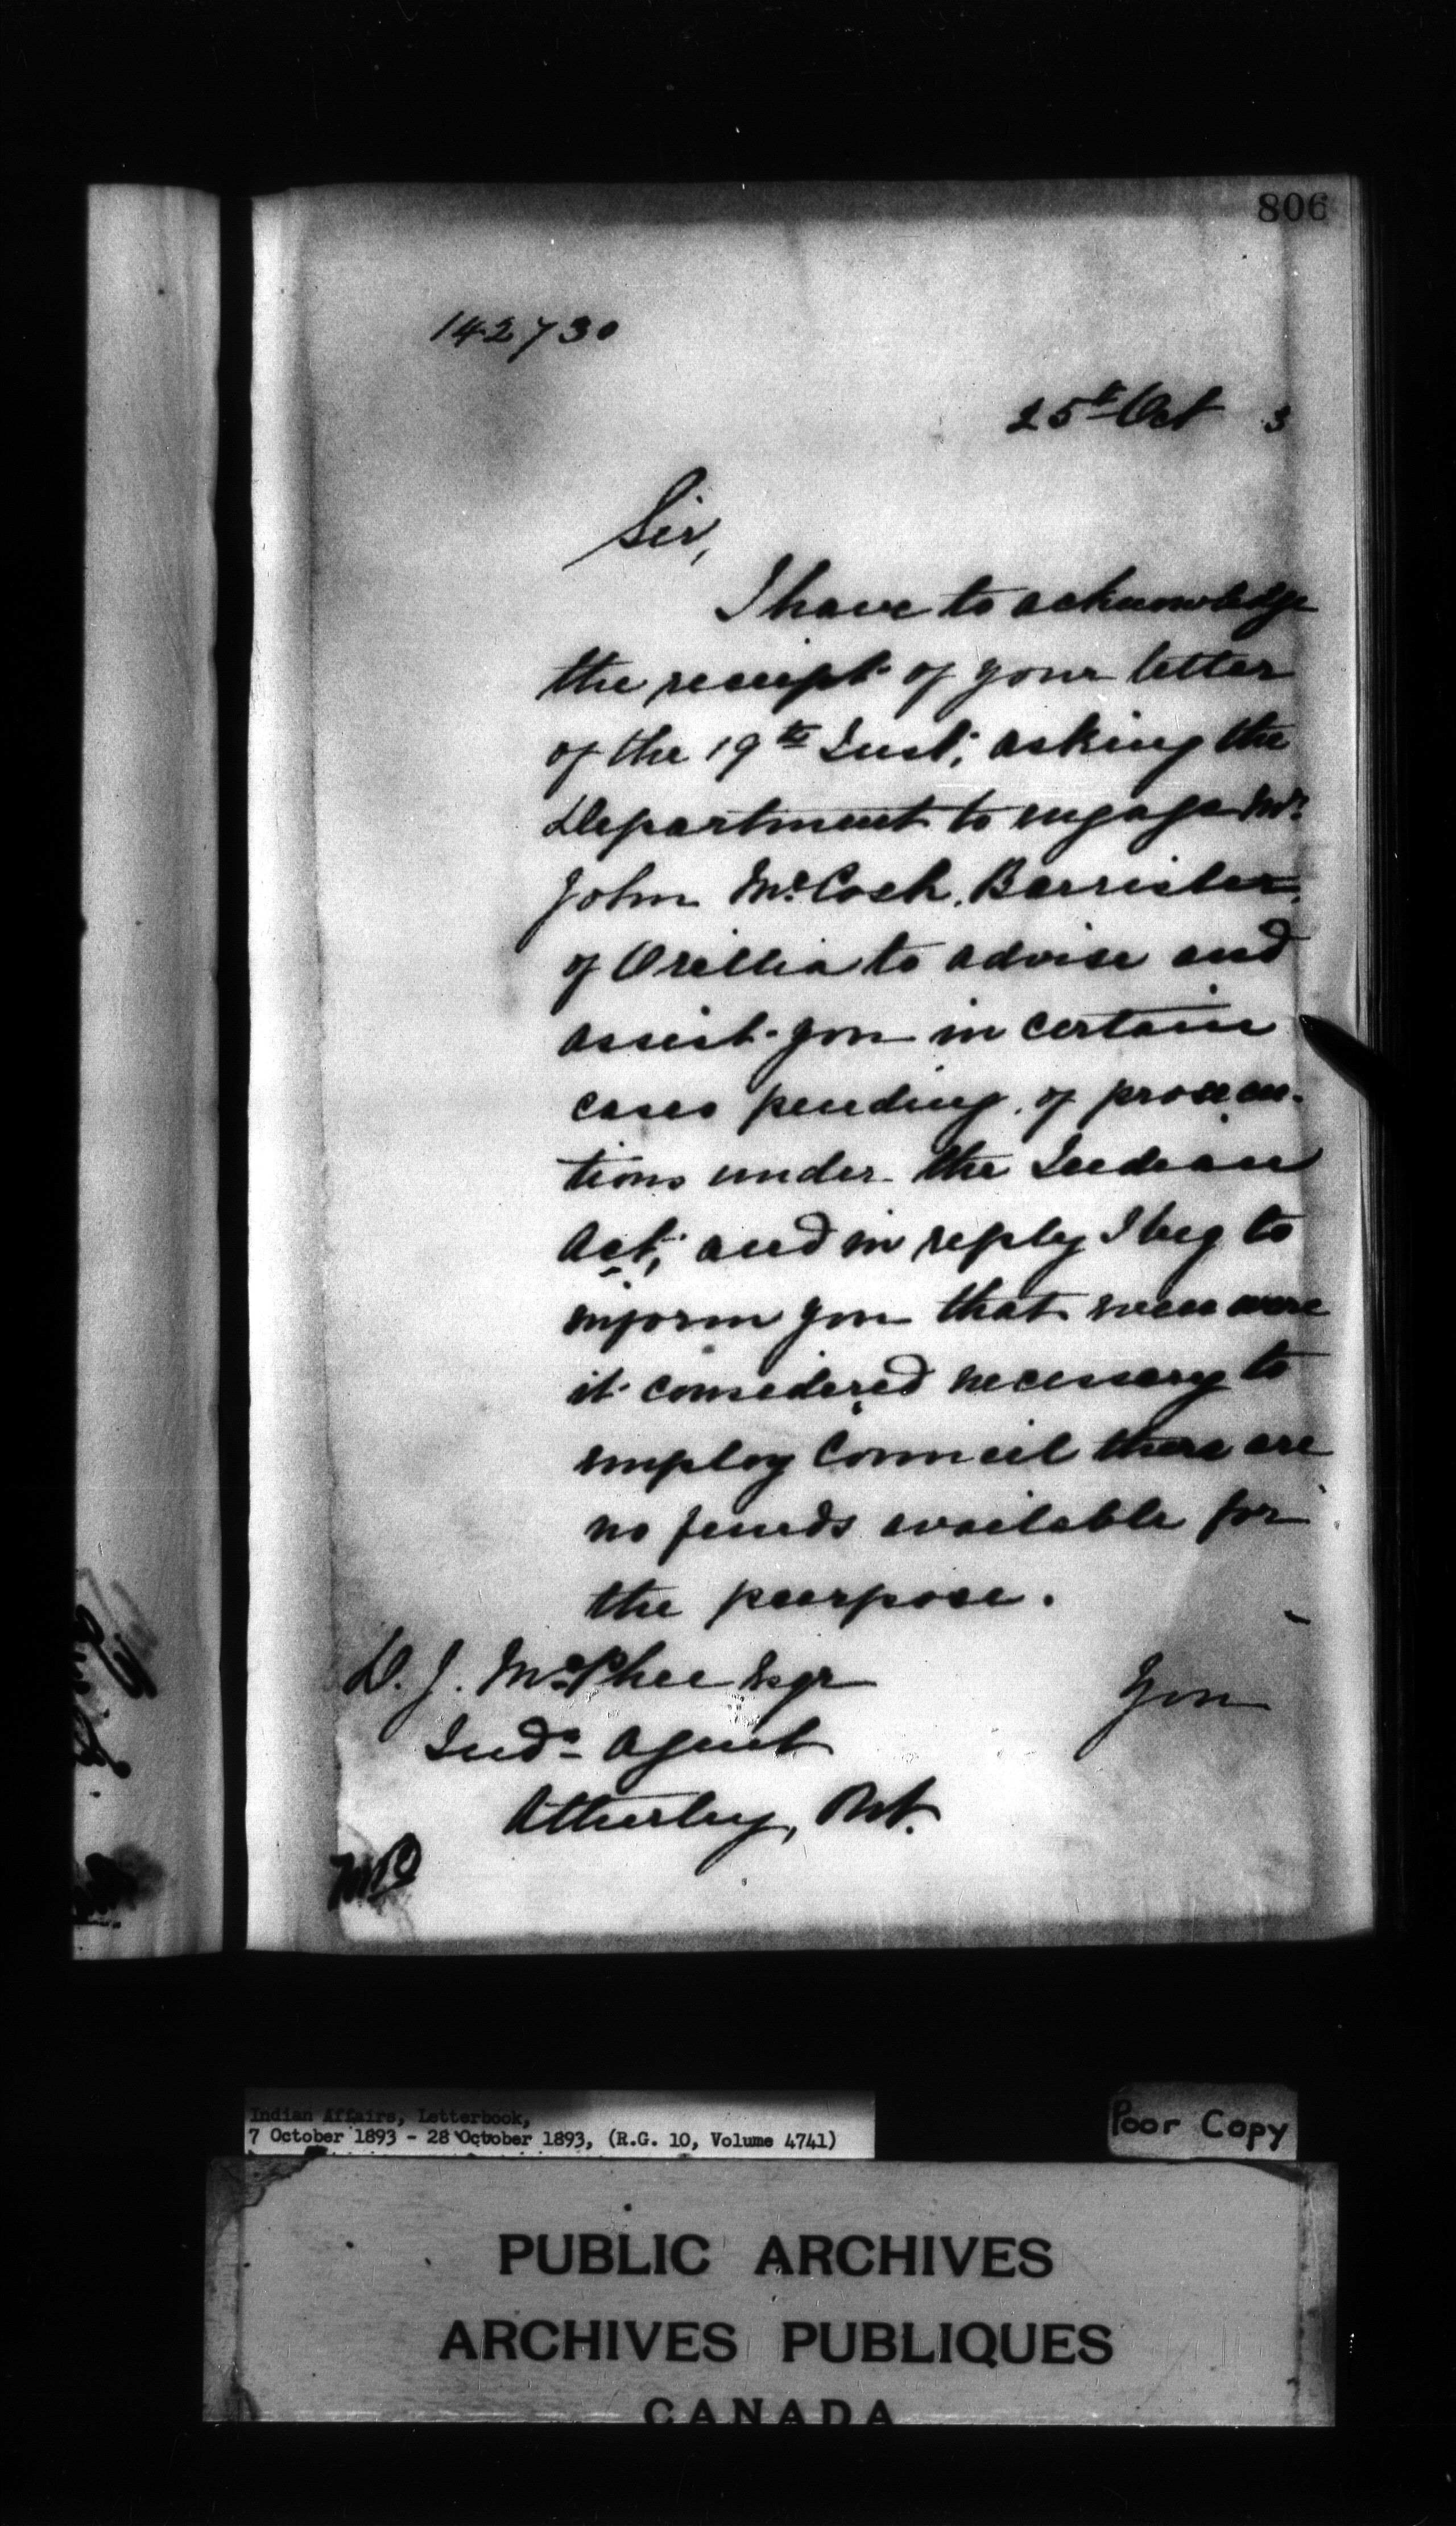 806
142730
25th Oct 3
Sir,
I have to acknowledge
the receipt of your letter
of the 19th Inst; asking the
Department to engage Mr.
John McCosh, Barrister,
of Orillia to advise and
assist you in certain
cases pending, of prosecu-
tions under the Indian
Act; and in reply I beg to
inform you that even were
it considered necessary to
employ Council there are
no funds available for
the purpose.
D. J. McPhee Esqr
You
Indn Agent
Atherley, Ont.
Indian Affairs, Letterbook,
7 October 1893 - 28 October 1893, (R.G. 10, Volume 4741)
Poor Copy
PUBLIC ARCHIVES
ARCHIVES PUBLIQUES
CANADA